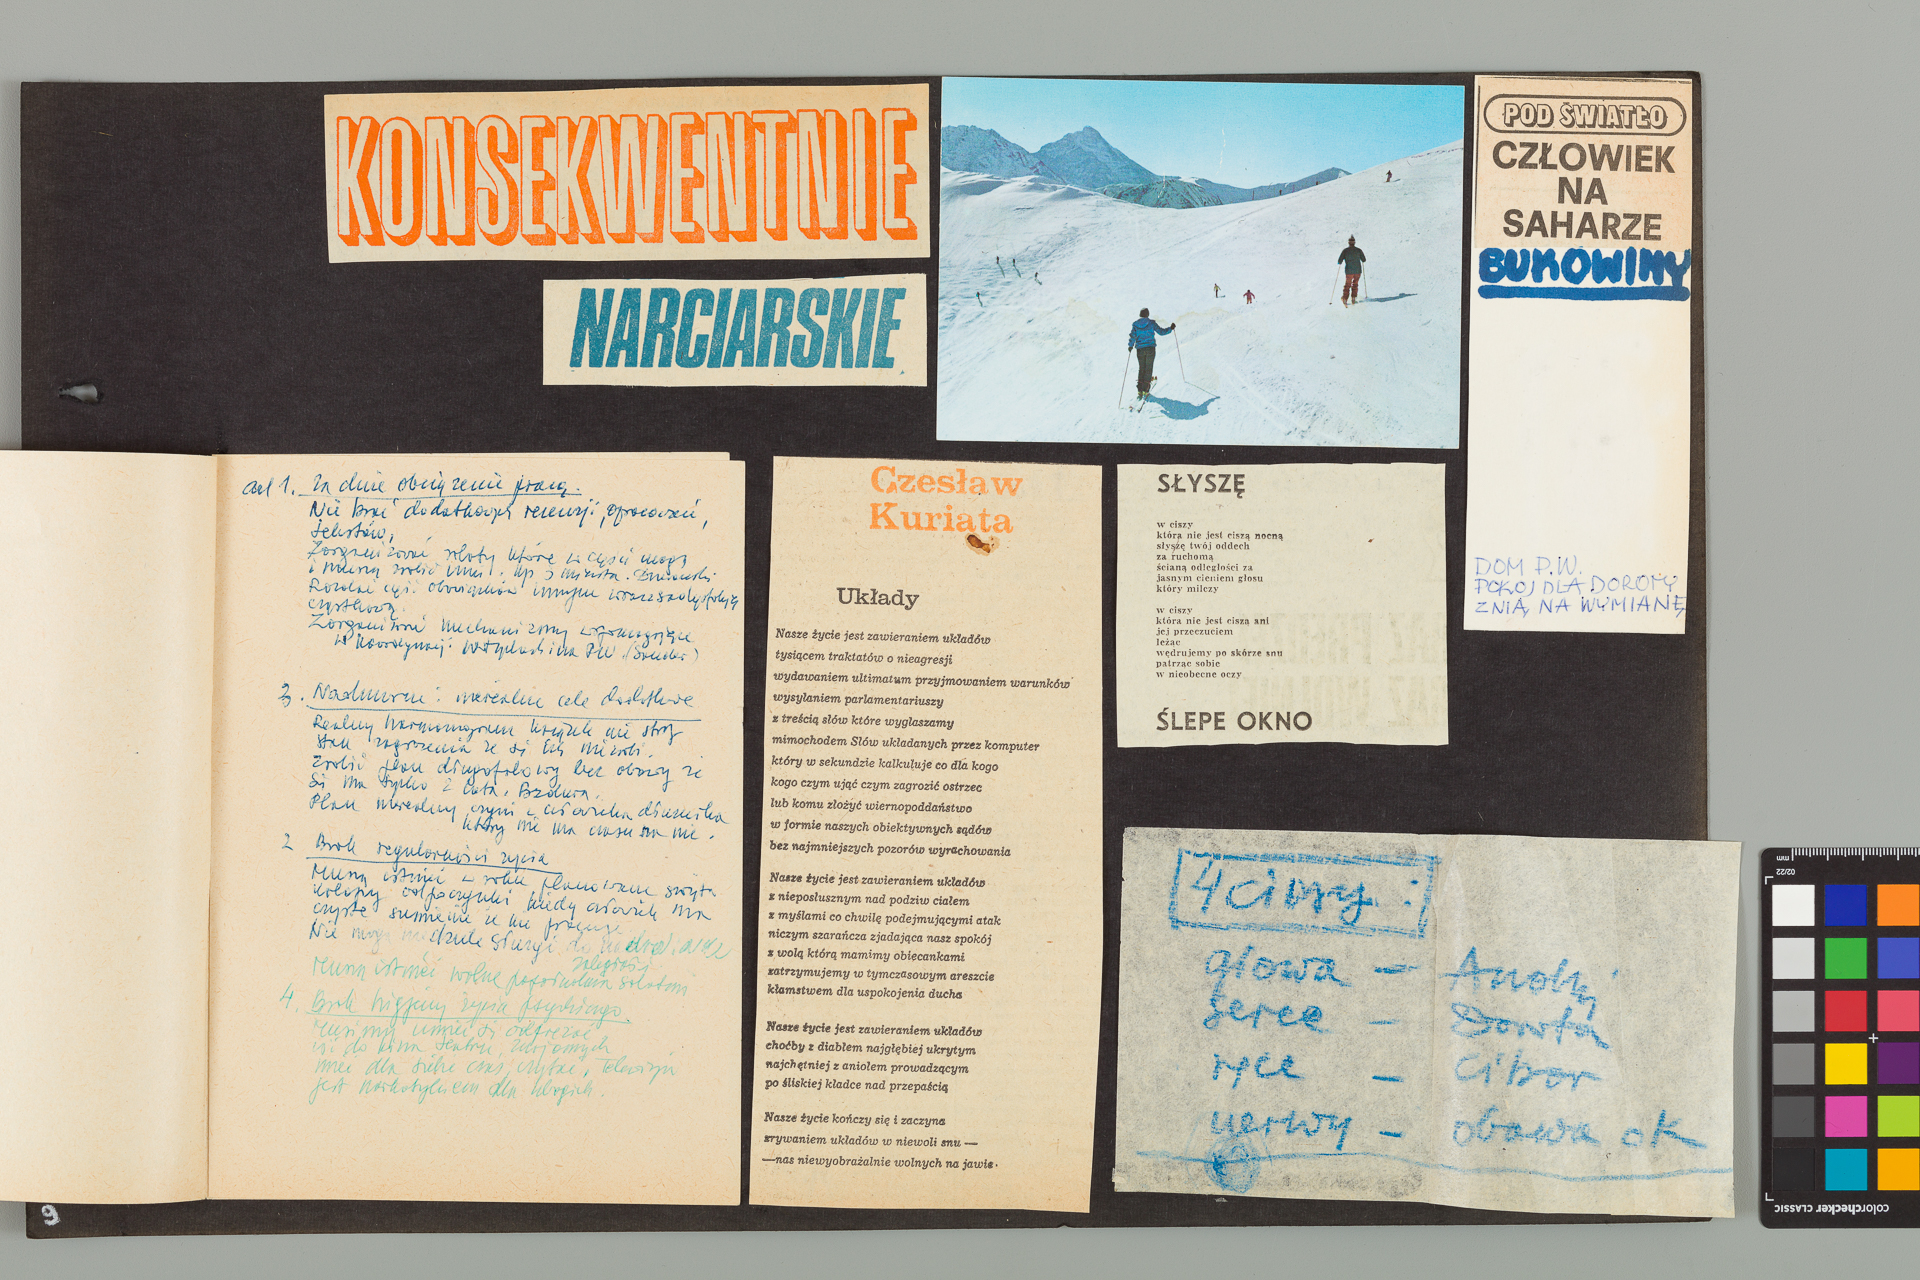 KONSEKWENTNIE
NARCIARSKIE
POD ŚWIATŁO
CZŁOWIEK
NA
SAHARZE
BUKOWINY
DOM P.W.
POKOJ DLA DOROTY
Z NIĄ NA WYMIANĘ
ad 1. Za duże obciążenie pracą.
Nie brać dodatkowych recenzji, opracowań,
tekstów,
Zorganizować
i muszą zrobić inni. np z miasta.
Zorganizować mechanizmy wspomagające
3. Nadmierne i nierealne cele dodatkowe
Realny harmonogram książek nie
stan zagrożenia że się ich nie zrobi.
Zrobić plan długofalowy bez obawy że
się ma tylko 2 lata. Bzdura.
Plan nierealny czyni z człowieka
który nie ma czasu na nic.
2 Brak regularności życia
Muszą istnieć w roku planowane święta
odpoczynki kiedy człowiek ma
czyste sumienie że nie pracuje
Nie mogą niedziele służyć do
zaległości
Muszą istnieć wolne popołudnia
4. Brak higieny życia psychicznego.
Musimy umieć się
iść do kina teatru, znajomych
mieć dla siebie czas, czytać, Telewizja
jest narkotykiem dla ubogich.
Czesław
Kuriata
Układy
Nasze życie jest zawieraniem układów
tysiącem traktatów o nieagresji
wydawaniem ultimatum przyjmowaniem warunków
wysyłaniem parlamentariuszy
z treścią słów które wygłaszamy
mimochodem Słów układanych przez komputer
który w sekundzie kalkuluje co dla kogo
kogo czym ująć czym zagrozić ostrzec
lub komu złożyć wiernopoddaństwo
w formie naszych obiektywnych sądów
bez najmniejszych pozorów wyrachowania
Nasze życie jest zawieraniem układów
z nieposłusznym nad podziw ciałem
z myślami co chwilę podejmującymi atak
niczym szarańcza zjadająca nasz spokój
z wolą którą mamimy obiecankami
zatrzymujemy w tymczasowym areszcie
kłamstwem dla uspokojenia ducha
Nasze życie jest zawieraniem układów
choćby z diabłem najgłębiej ukrytym
najchętniej z aniołem prowadzącym
po śliskiej kładce nad przepaścią
Nasze życie kończy się i zaczyna
zrywaniem układów w niewoli snu —
—nas niewyobrażalnie wolnych na jawie.
SŁYSZĘ
w ciszy
która nie jest ciszą nocną
słyszę twój oddech
za ruchomą
ścianą odległości za
jasnym cieniem głosu
który milczy
w ciszy
która nie jest ciszą ani
jej przeczuciem
leżąc
wędrujemy po skórze snu
patrząc sobie
w nieobecne oczy
ŚLEPE OKNO
4 ciosy:
głowa — Anoli
serce — Dorota
ręce — Cibor
nerwy — obawa ok
9
mm
02/22
colorchecker CLASSIC